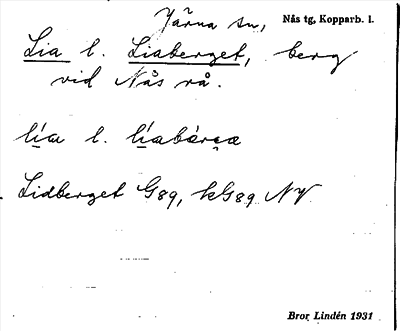 Järna sn, Nås tg, Kopparb. l.
Lia l. Liaberget, berg
vid Nås rå.
lia l. liabárga
Lidberget G89, kG89 NV
Bror Lindén 1931